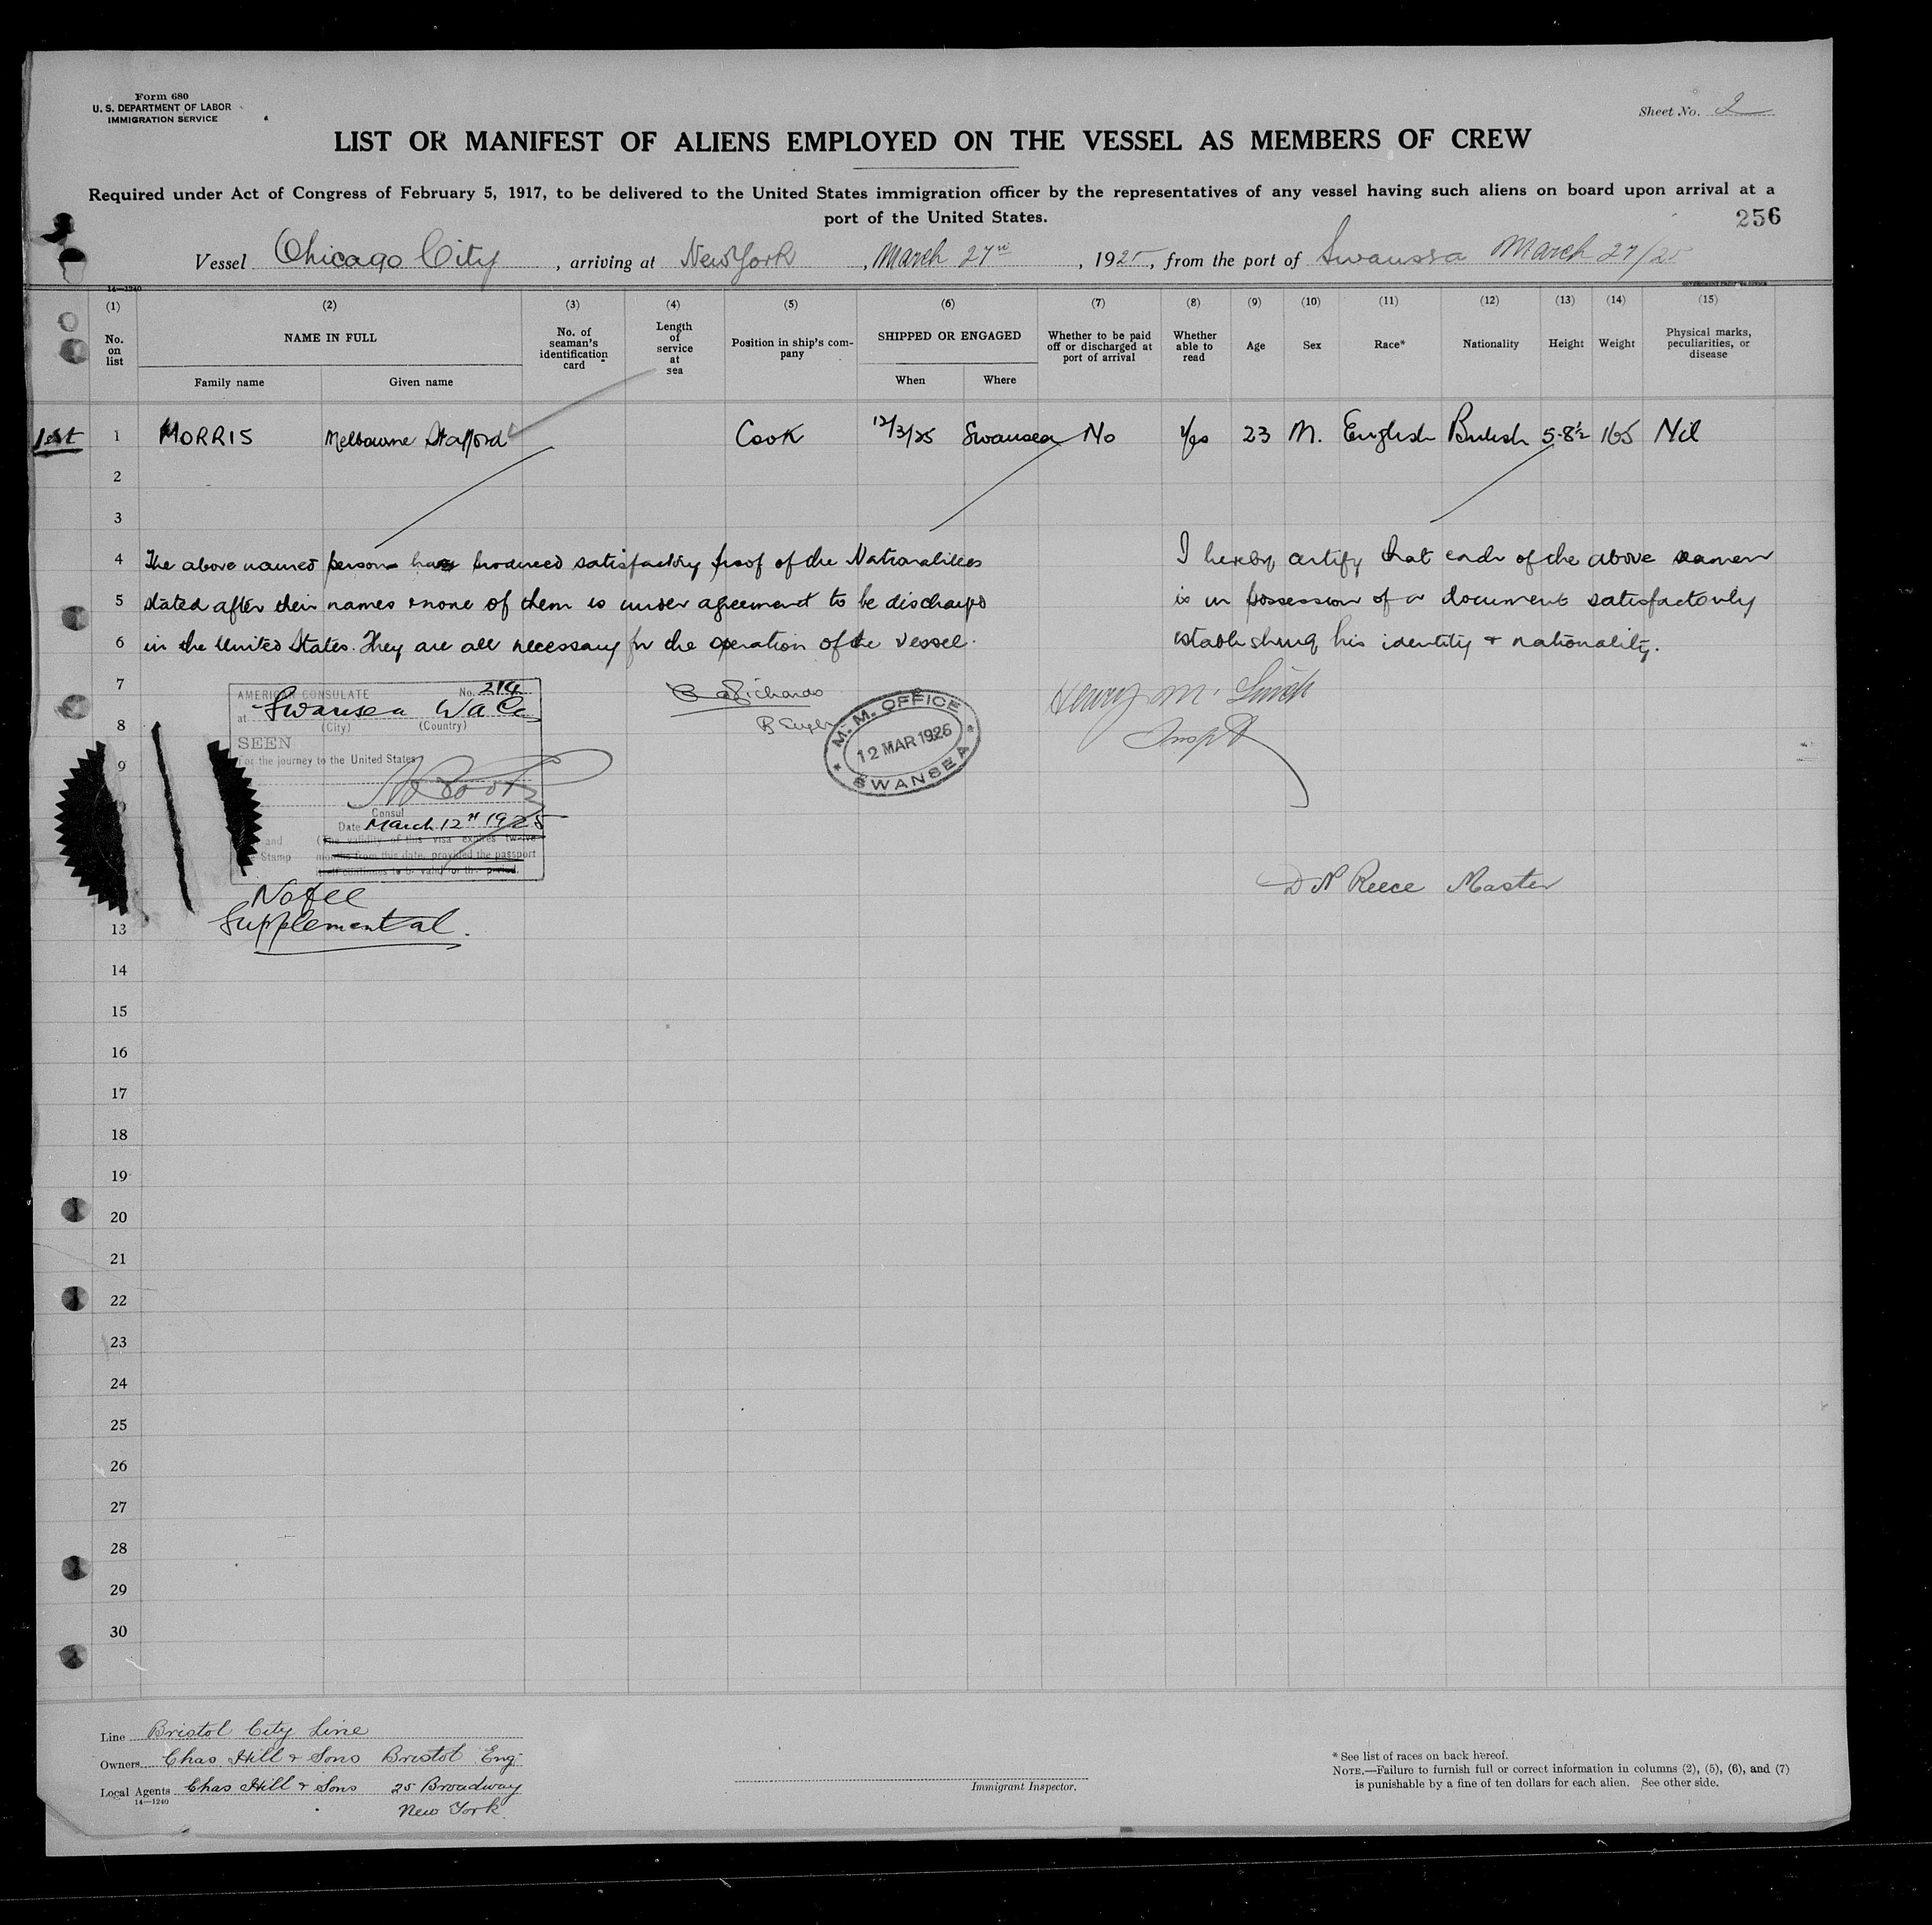 Form 680
U. S. DEPARTMENT OF LABOR
IMMIGRATION SERVICE
Sheet No. 2
LIST OR MANIFEST OF ALIENS EMPLOYED ON THE VESSEL AS MEMBERS OF CREW
Required under Act of Congress of February 5, 1917, to be delivered to the United States immigration officer by the representatives of any vessel having such aliens on board upon arrival at a
port of the United States.
256
Vessel Chicago City, arriving at New York, March 27th, 1925, from the port of Swansea March 27/25
14—1240
GOVERNMENT PRINTING OFFICE
(1) (2) (3) (4) (5) (6) (7) (8) (9) (10) (11) (12) (13) (14) (15)
No. on list
NAME IN FULL
Family name
Given name
No. of seaman's identification card
Length of service at sea
Position in ship's company
SHIPPED OR ENGAGED
When
Where
Whether to be paid off or discharged at port of arrival
Whether able to read
Age
Sex
Race*
Nationality
Height
Weight
Physical marks, peculiarities, or disease
1st 1 MORRIS Melbourne Stafford Cook 12/3/25 Swansea No Yes 23 M. English British 5-8½ 165 Nil
2
3
4 The above named person has produced satisfactory proof of the Nationalities
5 stated after their names & none of them is under agreement to be discharged
6 in the United States. They are all necessary for the operation of the vessel.
I hereby certify that each of the above seamen
is in possession of a document satisfactorily
establishing his identity & nationality.
7
8
9
AMERICAN CONSULATE No. 214
at Swansea Wales
(City) (Country)
SEEN
For the journey to the United States
Consul
Date March 12th 1925
and
Stamp
(The validity of this visa expires twelve
months from this date, provided the passport
itself continues to be valid for the period.
No fee
Supplemental.
Richards
M. M. OFFICE
12 MAR 1926
SWANSEA
Henry M. Smith
Inspt
D N Reece Master
13
14
15
16
17
18
19
20
21
22
23
24
25
26
27
28
29
30
Line Bristol City Line
Owners Chas Hill & Sons Bristol Eng.
Local Agents Chas Hill & Sons 25 Broadway
New York.
14—1240
Immigrant Inspector.
* See list of races on back hereof.
NOTE.—Failure to furnish full or correct information in columns (2), (5), (6), and (7)
is punishable by a fine of ten dollars for each alien. See other side.